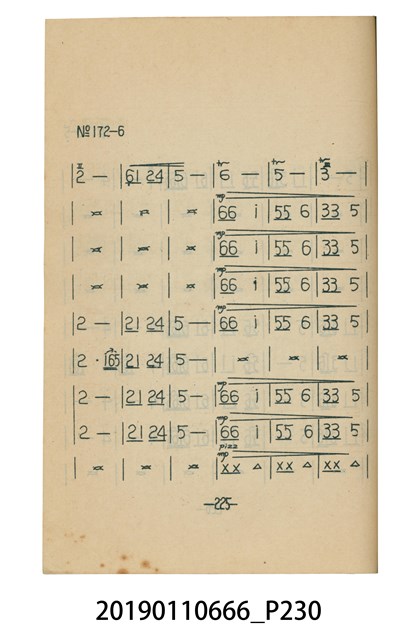 №172-6
2 — | 61 24 | 5 — | tr 6 — | tr 5 — | tr 3 —
| × | × | × | mp 66 i | 55 6 | 33 5 |
| × | × | × | mp 66 i | 55 6 | 33 5 |
| × | × | × | mp 66 i | 55 6 | 33 5 |
| 2 — | 21 24 | 5 — | mp 66 i | 55 6 | 33 5 |
| 2 · 165 | 21 24 | 5 — | × | × | × |
| 2 — | 21 24 | 5 — | mp 66 i | 55 6 | 33 5 |
| 2 — | 21 24 | 5 — | mp 66 i | 55 6 | 33 5 |
pizz
| × | × | × | mp XX △ | XX △ | XX △ |
—225—
20190110666_P230